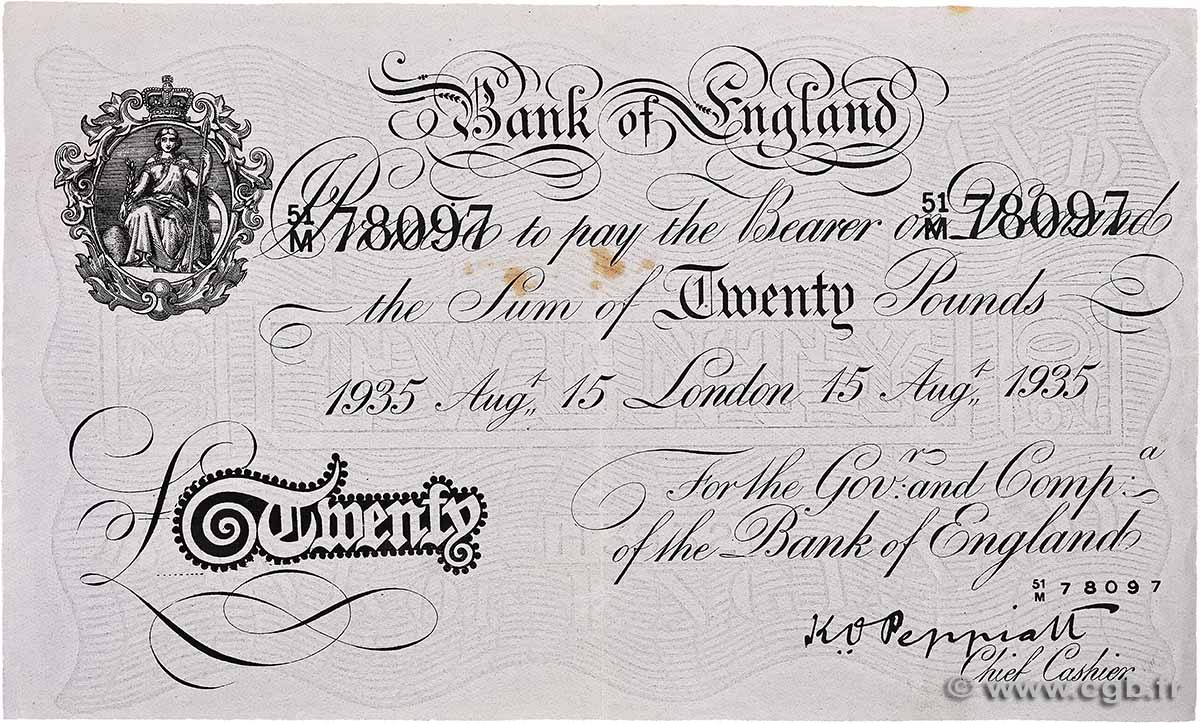 Bank of England
51/M 78097 51/M 78097
Promise to pay the Bearer on Demand
the Sum of Twenty Pounds
1935 Augt 15 London 15 Augt 1935
£ Twenty
For the Govr: and Compa:
of the Bank of England
51/M 78097
K.O. Peppiatt
Chief Cashier
© www.cgb.fr